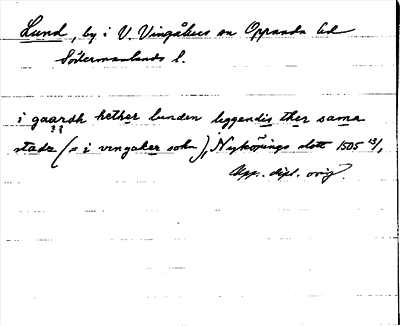 Lund, by i V. Vingåkers sn Oppunda hd
Södermanlands l.
i gaardh hether lunden leggendis ther sama
stadz (= i vingaker sokn), Nyköpings slott 1505 13/1,
Upp. dipl. orig.